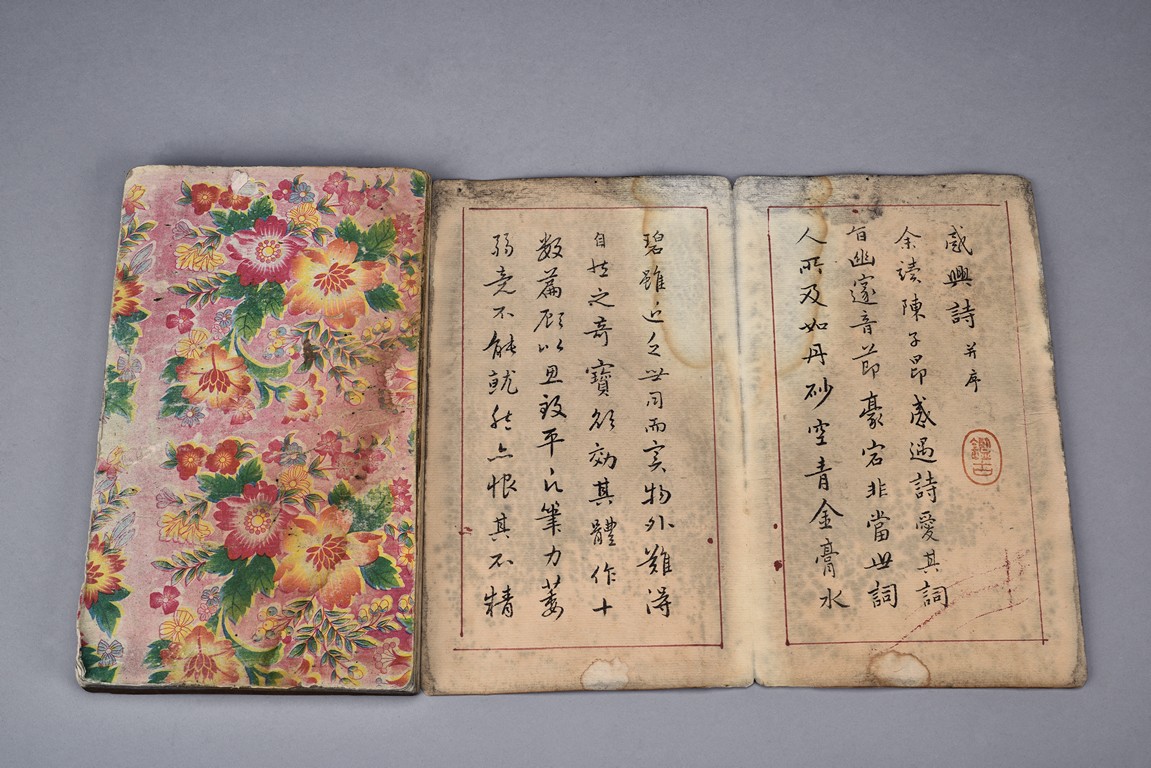 感興詩并序
余讀陳子昂感遇詩愛其詞
旨幽邃音節豪宕非當世詞
人所及如丹砂空青金膏水
碧雖近乏世用而实物外難得
自然之奇寶欲効其體作十
数篇顾以思致平凡筆力萎
弱竟不能就然亦恨其不精